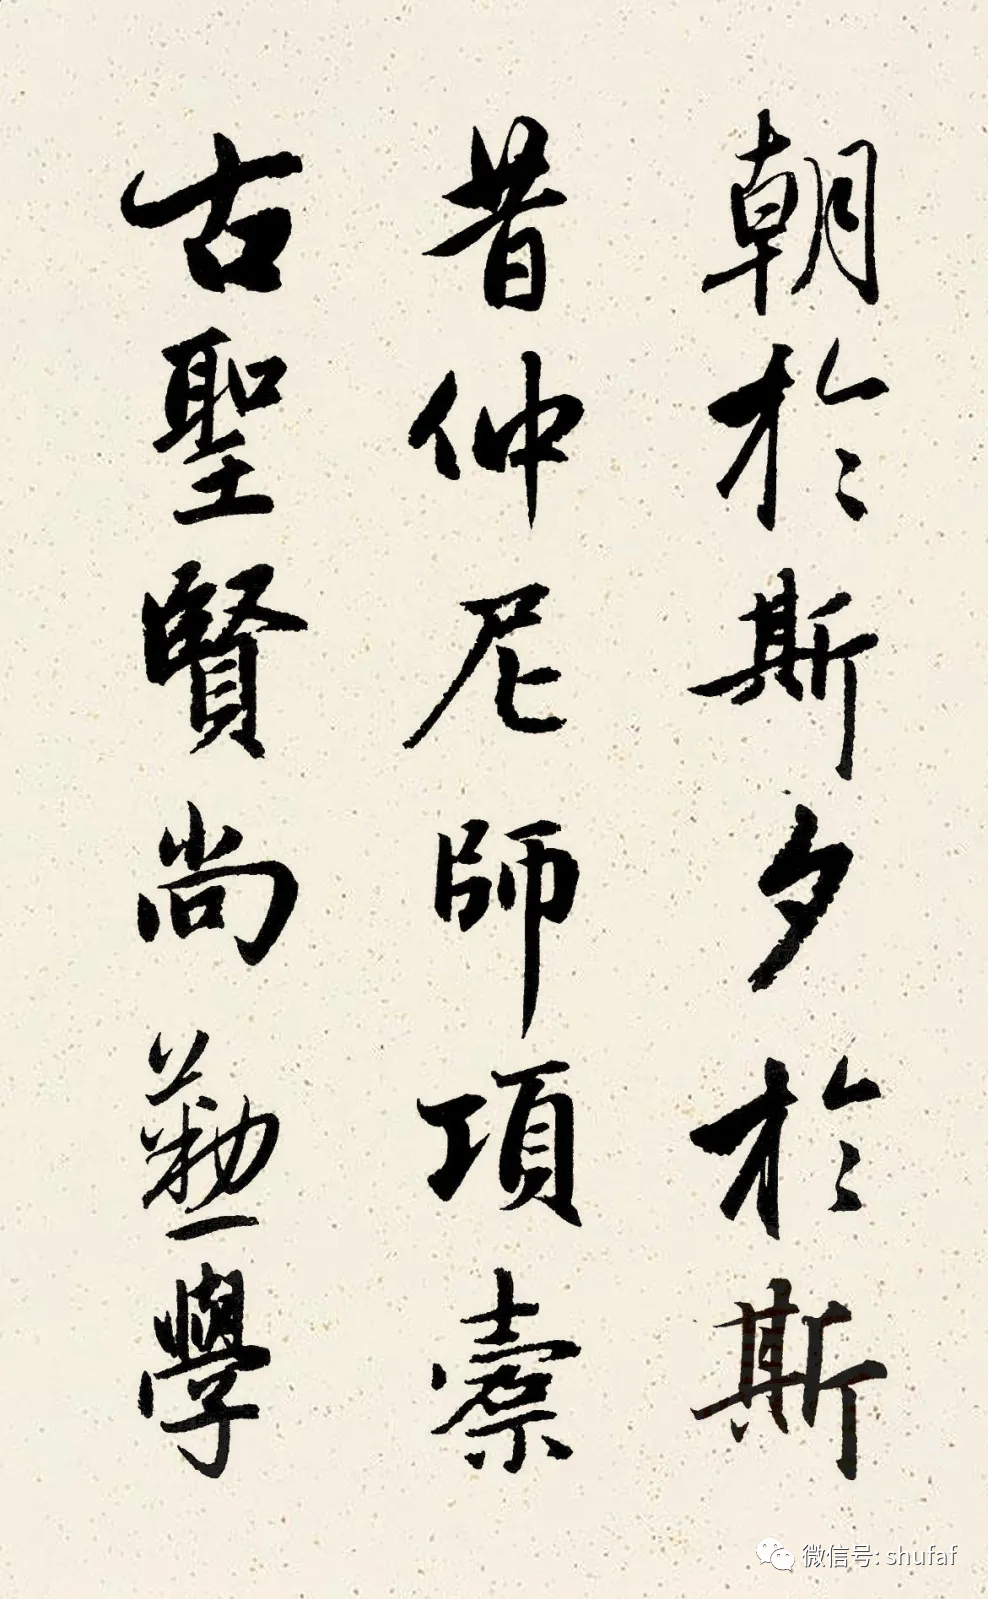 朝於斯夕於斯
昔仲尼師項橐
古聖賢尚勤學
微信号: shufaf